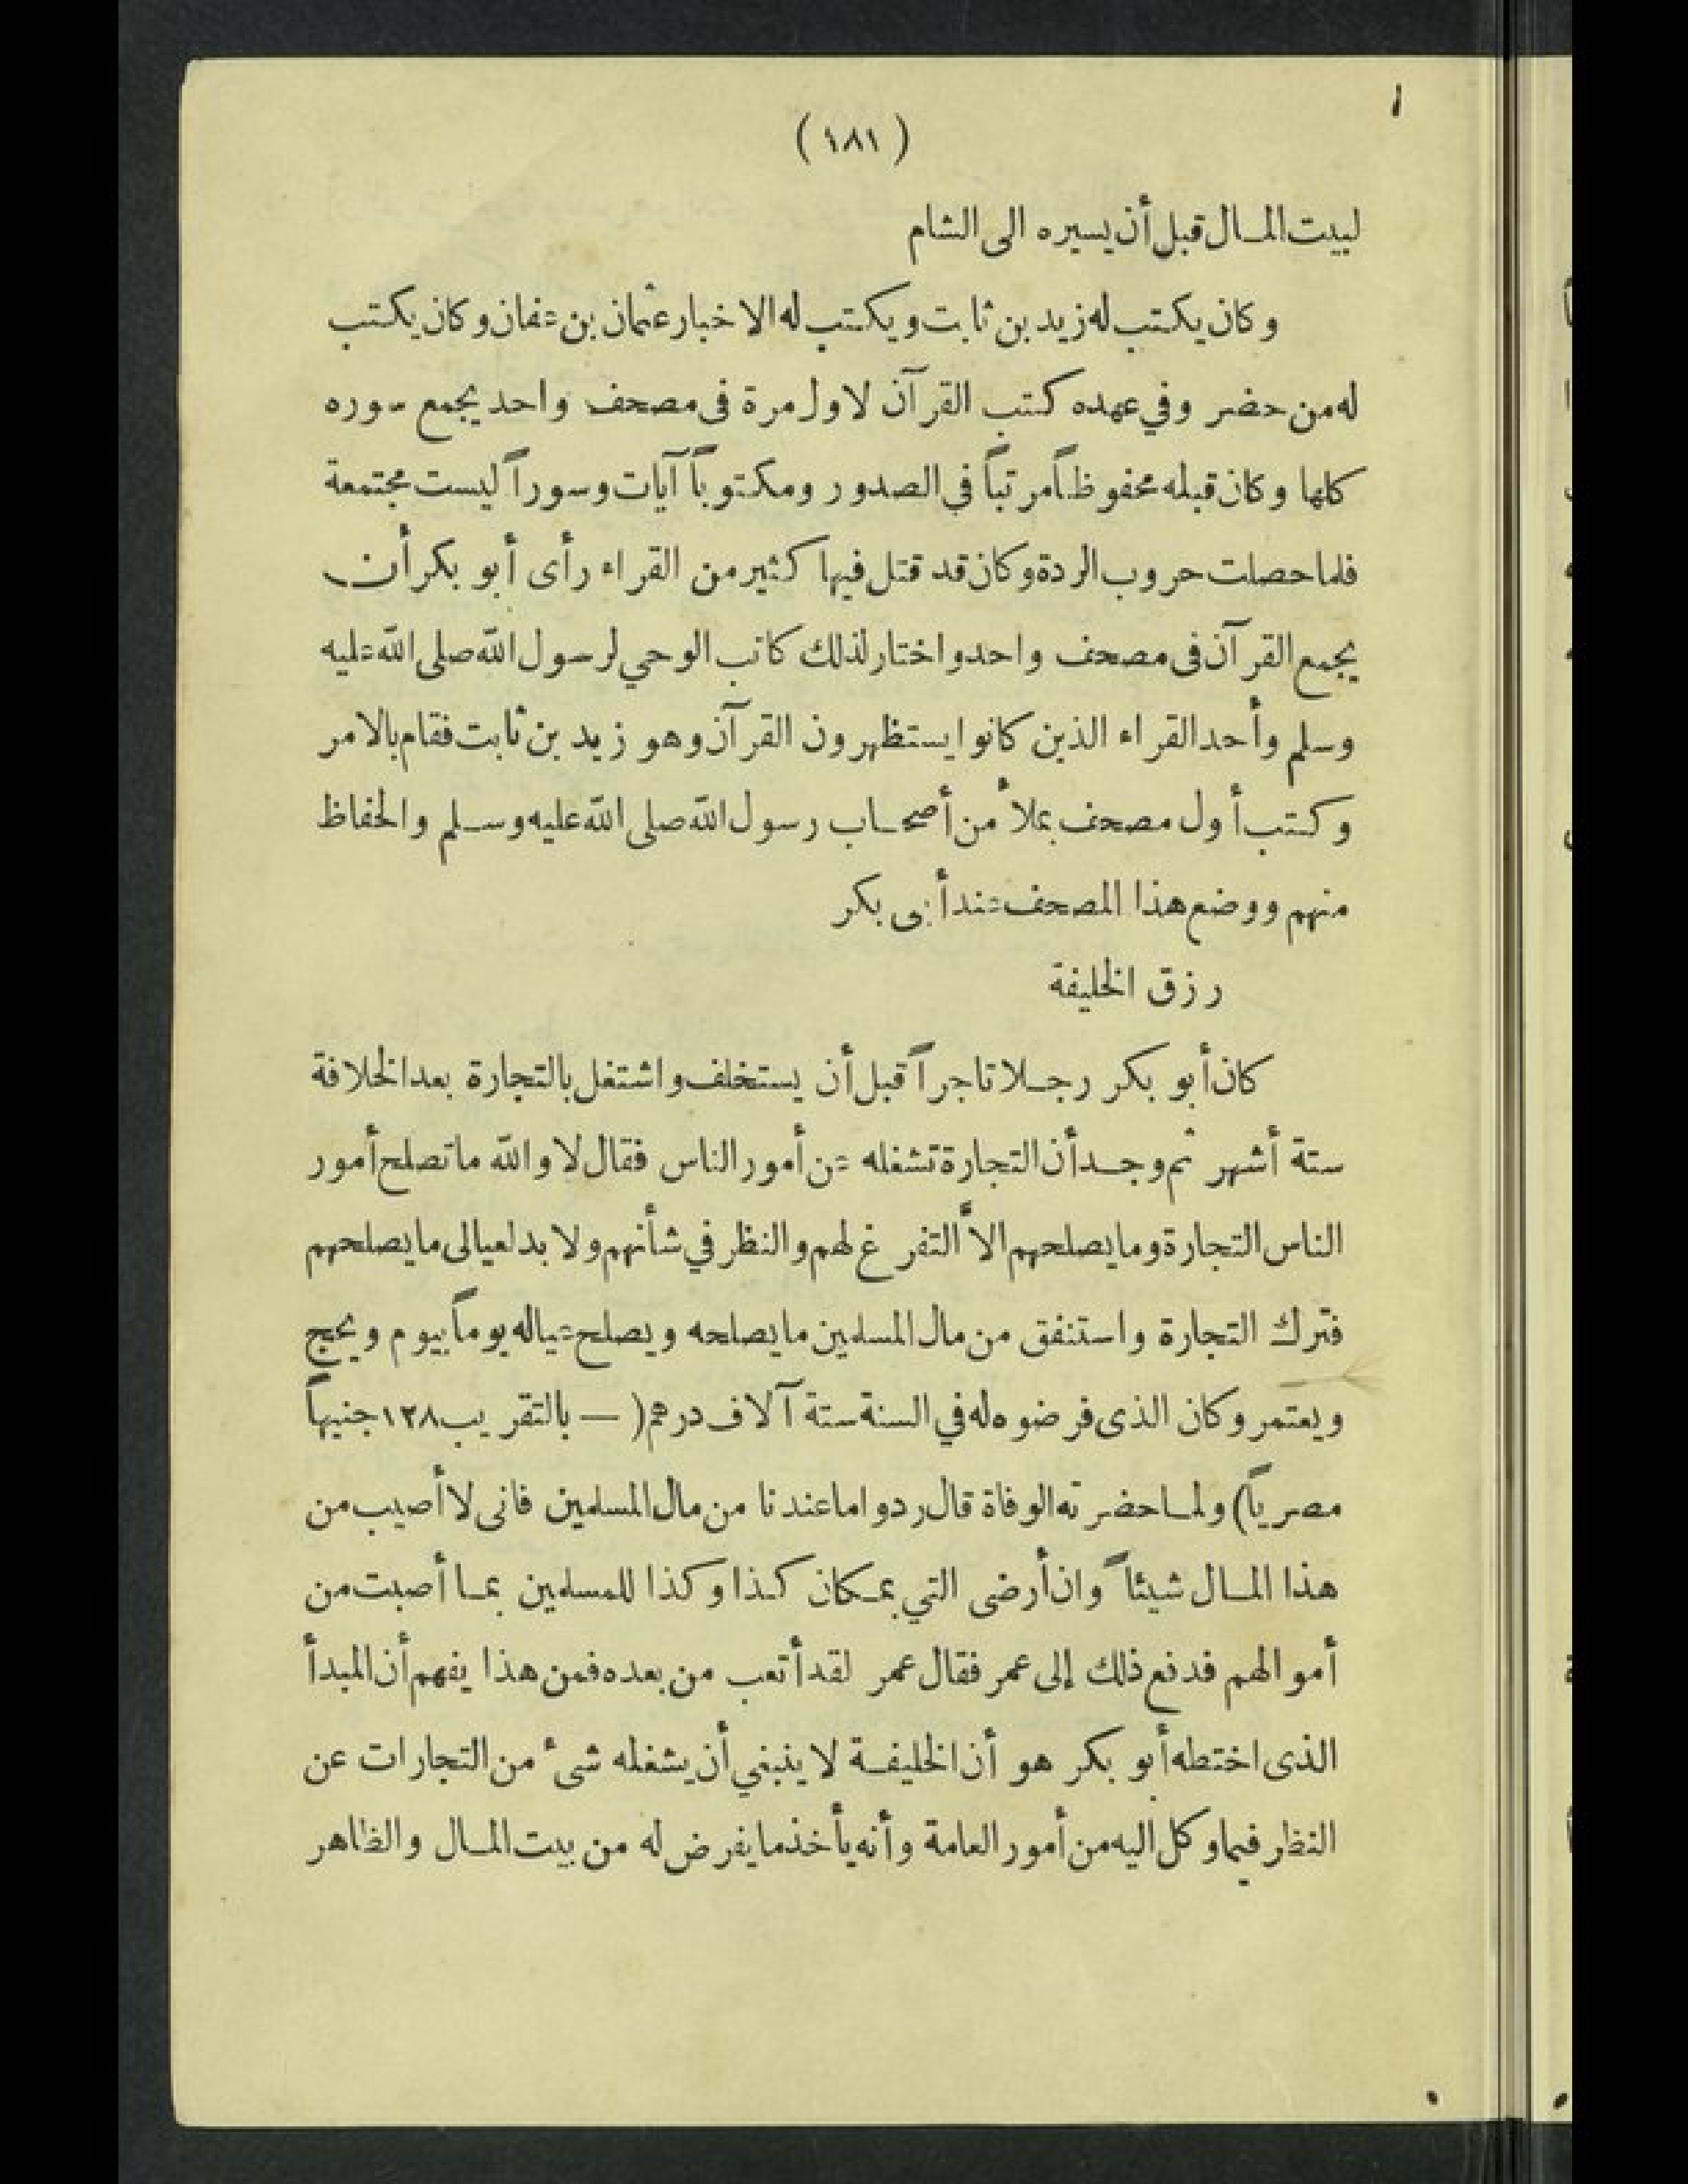 ( ١٨١ )
لبيت المال قبل أن يسيره الى الشام
وكان يكتب له زيد بن ثابت ويكتب له الاخبار عثمان بن عفان وكان يكتب
له من حضر وفي عهده كتب القرآن لاول مرة فى مصحف واحد يجمع سوره
كلها وكان قبله محفوظاً مرتباً في الصدور ومكتوباً آيات وسوراً ليست مجتمعة
فلما حصلت حروب الردة وكان قد قتل فيها كثير من القراء رأى أبو بكر أن
يجمع القرآن فى مصحف واحد واختار لذلك كاتب الوحي لرسول الله صلى الله عليه
وسلم وأحد القراء الذين كانوا يستظهرون القرآن وهو زيد بن ثابت فقام بالامر
وكتب أول مصحف بملأ من أصحاب رسول الله صلى الله عليه وسلم والحفاظ
منهم ووضع هذا المصحف عند أبى بكر
رزق الخليفة
كان أبو بكر رجلا تاجراً قبل أن يستخلف واشتغل بالتجارة بعد الخلافة
ستة أشهر ثم وجد أن التجارة تشغله عن أمور الناس فقال لا والله ما تصلح أمور
الناس التجارة وما يصلحهم الاَّ التفرغ لهم والنظر في شأنهم ولا بد لعيالى ما يصلحهم
فترك التجارة واستنفق من مال المسلمين ما يصلحه ويصلح عياله يوماً بيوم ويحج
ويعتمر وكان الذى فرضوه له في السنة ستة آلاف درهم ( — بالتقريب ١٢٨ جنيهاً
مصرياً) ولما حضرته الوفاة قال ردوا ما عندنا من مال المسلمين فانى لا أصيب من
هذا المال شيئاً وان أرضى التي بمكان كذا وكذا للمسلمين بما أصبت من
أموالهم فدفع ذلك إلى عمر فقال عمر لقد أتعب من بعده فمن هذا يفهم أن المبدأ
الذى اختطه أبو بكر هو أن الخليفة لا ينبغي أن يشغله شىء من التجارات عن
النظر فيما وكل اليه من أمور العامة وأنه يأخذ ما يفرض له من بيت المال والظاهر